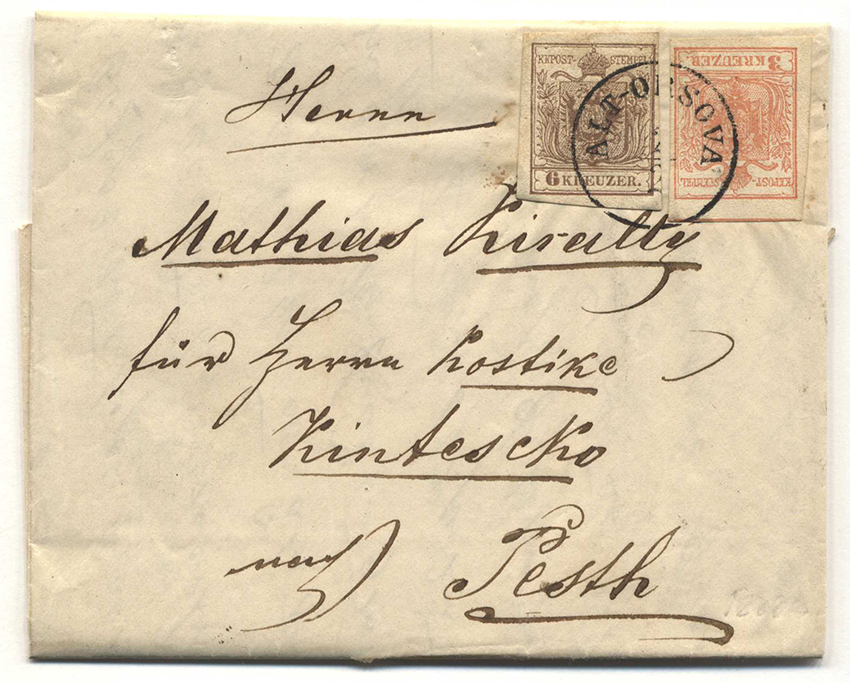 KKPOST-STEMPEL
6 KREUZER.
3 KREUZER.
KKPOST-STEMPEL
ALT-ORSOVA
Herrn
Mathias Kiralty
für Herrn Kostike
Kintescko
nach Pesth